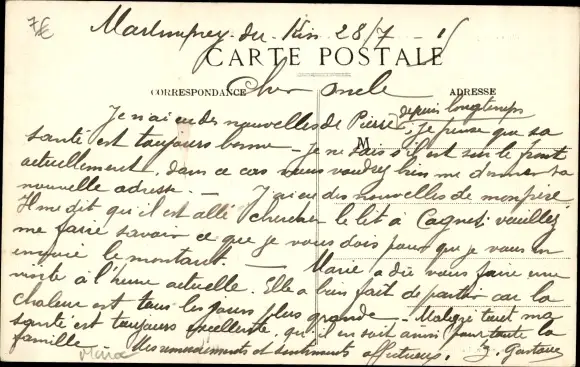 7€
Martimprey-du-Kiss 28/7
CARTE POSTALE
CORRESPONDANCE
ADRESSE
Cher oncle
Je n'ai eu des nouvelles de Pierre depuis longtemps
M
; Je pense que sa
santé est toujours bonne - Je ne sais s'il est sur le front
actuellement, dans ce cas vous voudrez bien me donner sa
nouvelle adresse. - J'ai eu des nouvelles de mon père
Il me dit qu'il est allé chercher le lit à Cagnes; veuillez
me faire savoir ce que je vous dois pour que je vous en
envoie le montant. - Marie a dû vous faire une
visite à l'heure actuelle. Elle a bien fait de partir car la
chaleur est tous les jours plus grande - Malgré tout ma
santé est toujours excellente, qu'il en soit ainsi pour toute la
famille
Mes remerciements et sentiments affectueux. Gustave